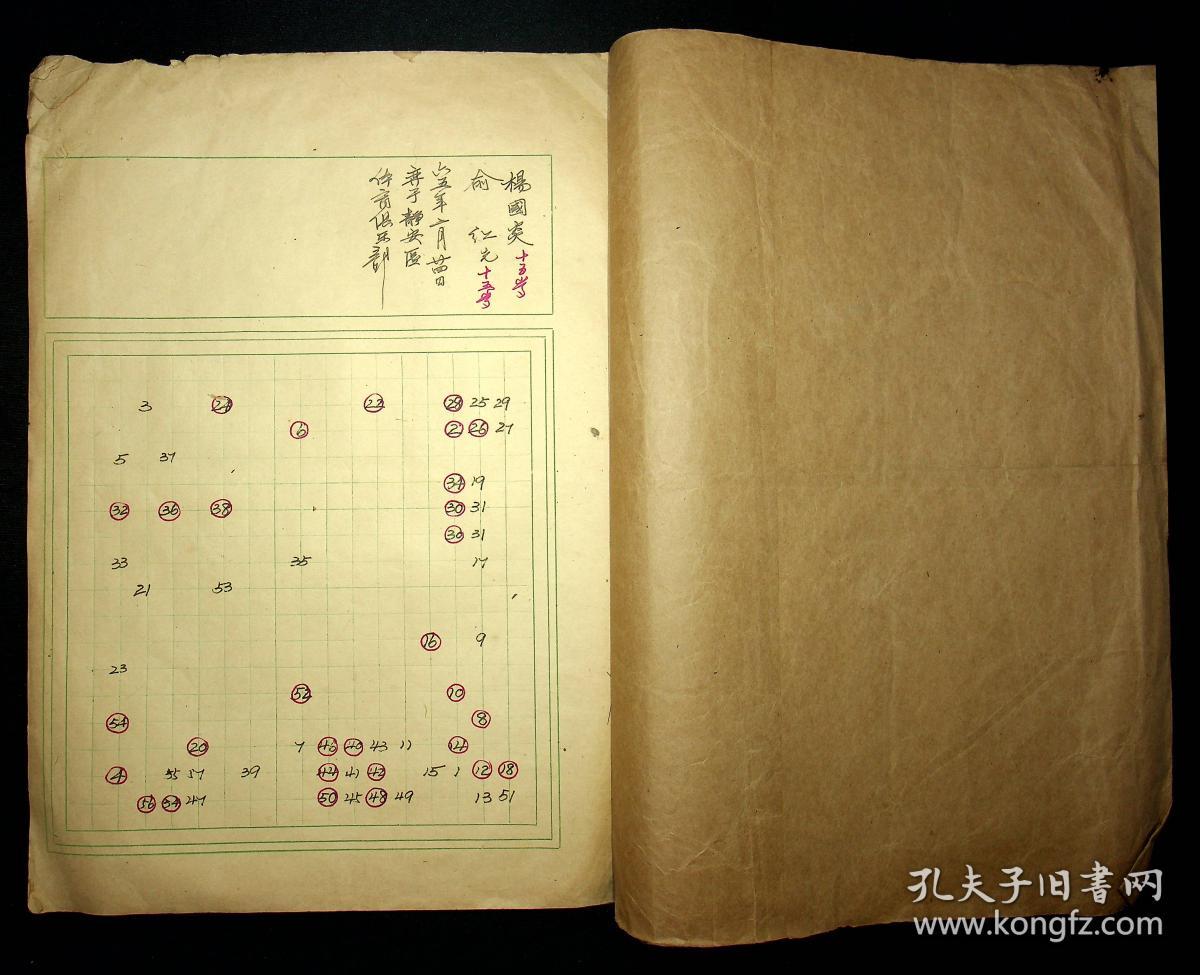 楊國炎 十五岁
俞红元 十五岁
六五年二月廿四日
弈于静安區
体育俱乐部
3 24 22 28 25 29
6 2 26 27
5 37
34 19
32 36 38 30 31
30 31
33 35 17
21 53
16 9
23
52 10
54 8
20 7 46 40 43 11 14
4 55 57 39 44 41 42 15 1 12 18
56 34 47 50 45 48 49 13 51
孔夫子旧書网
www.kongfz.com